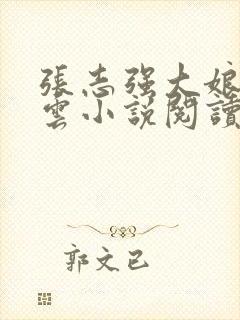 張志強大娘
雲小說閱讀
郭文已